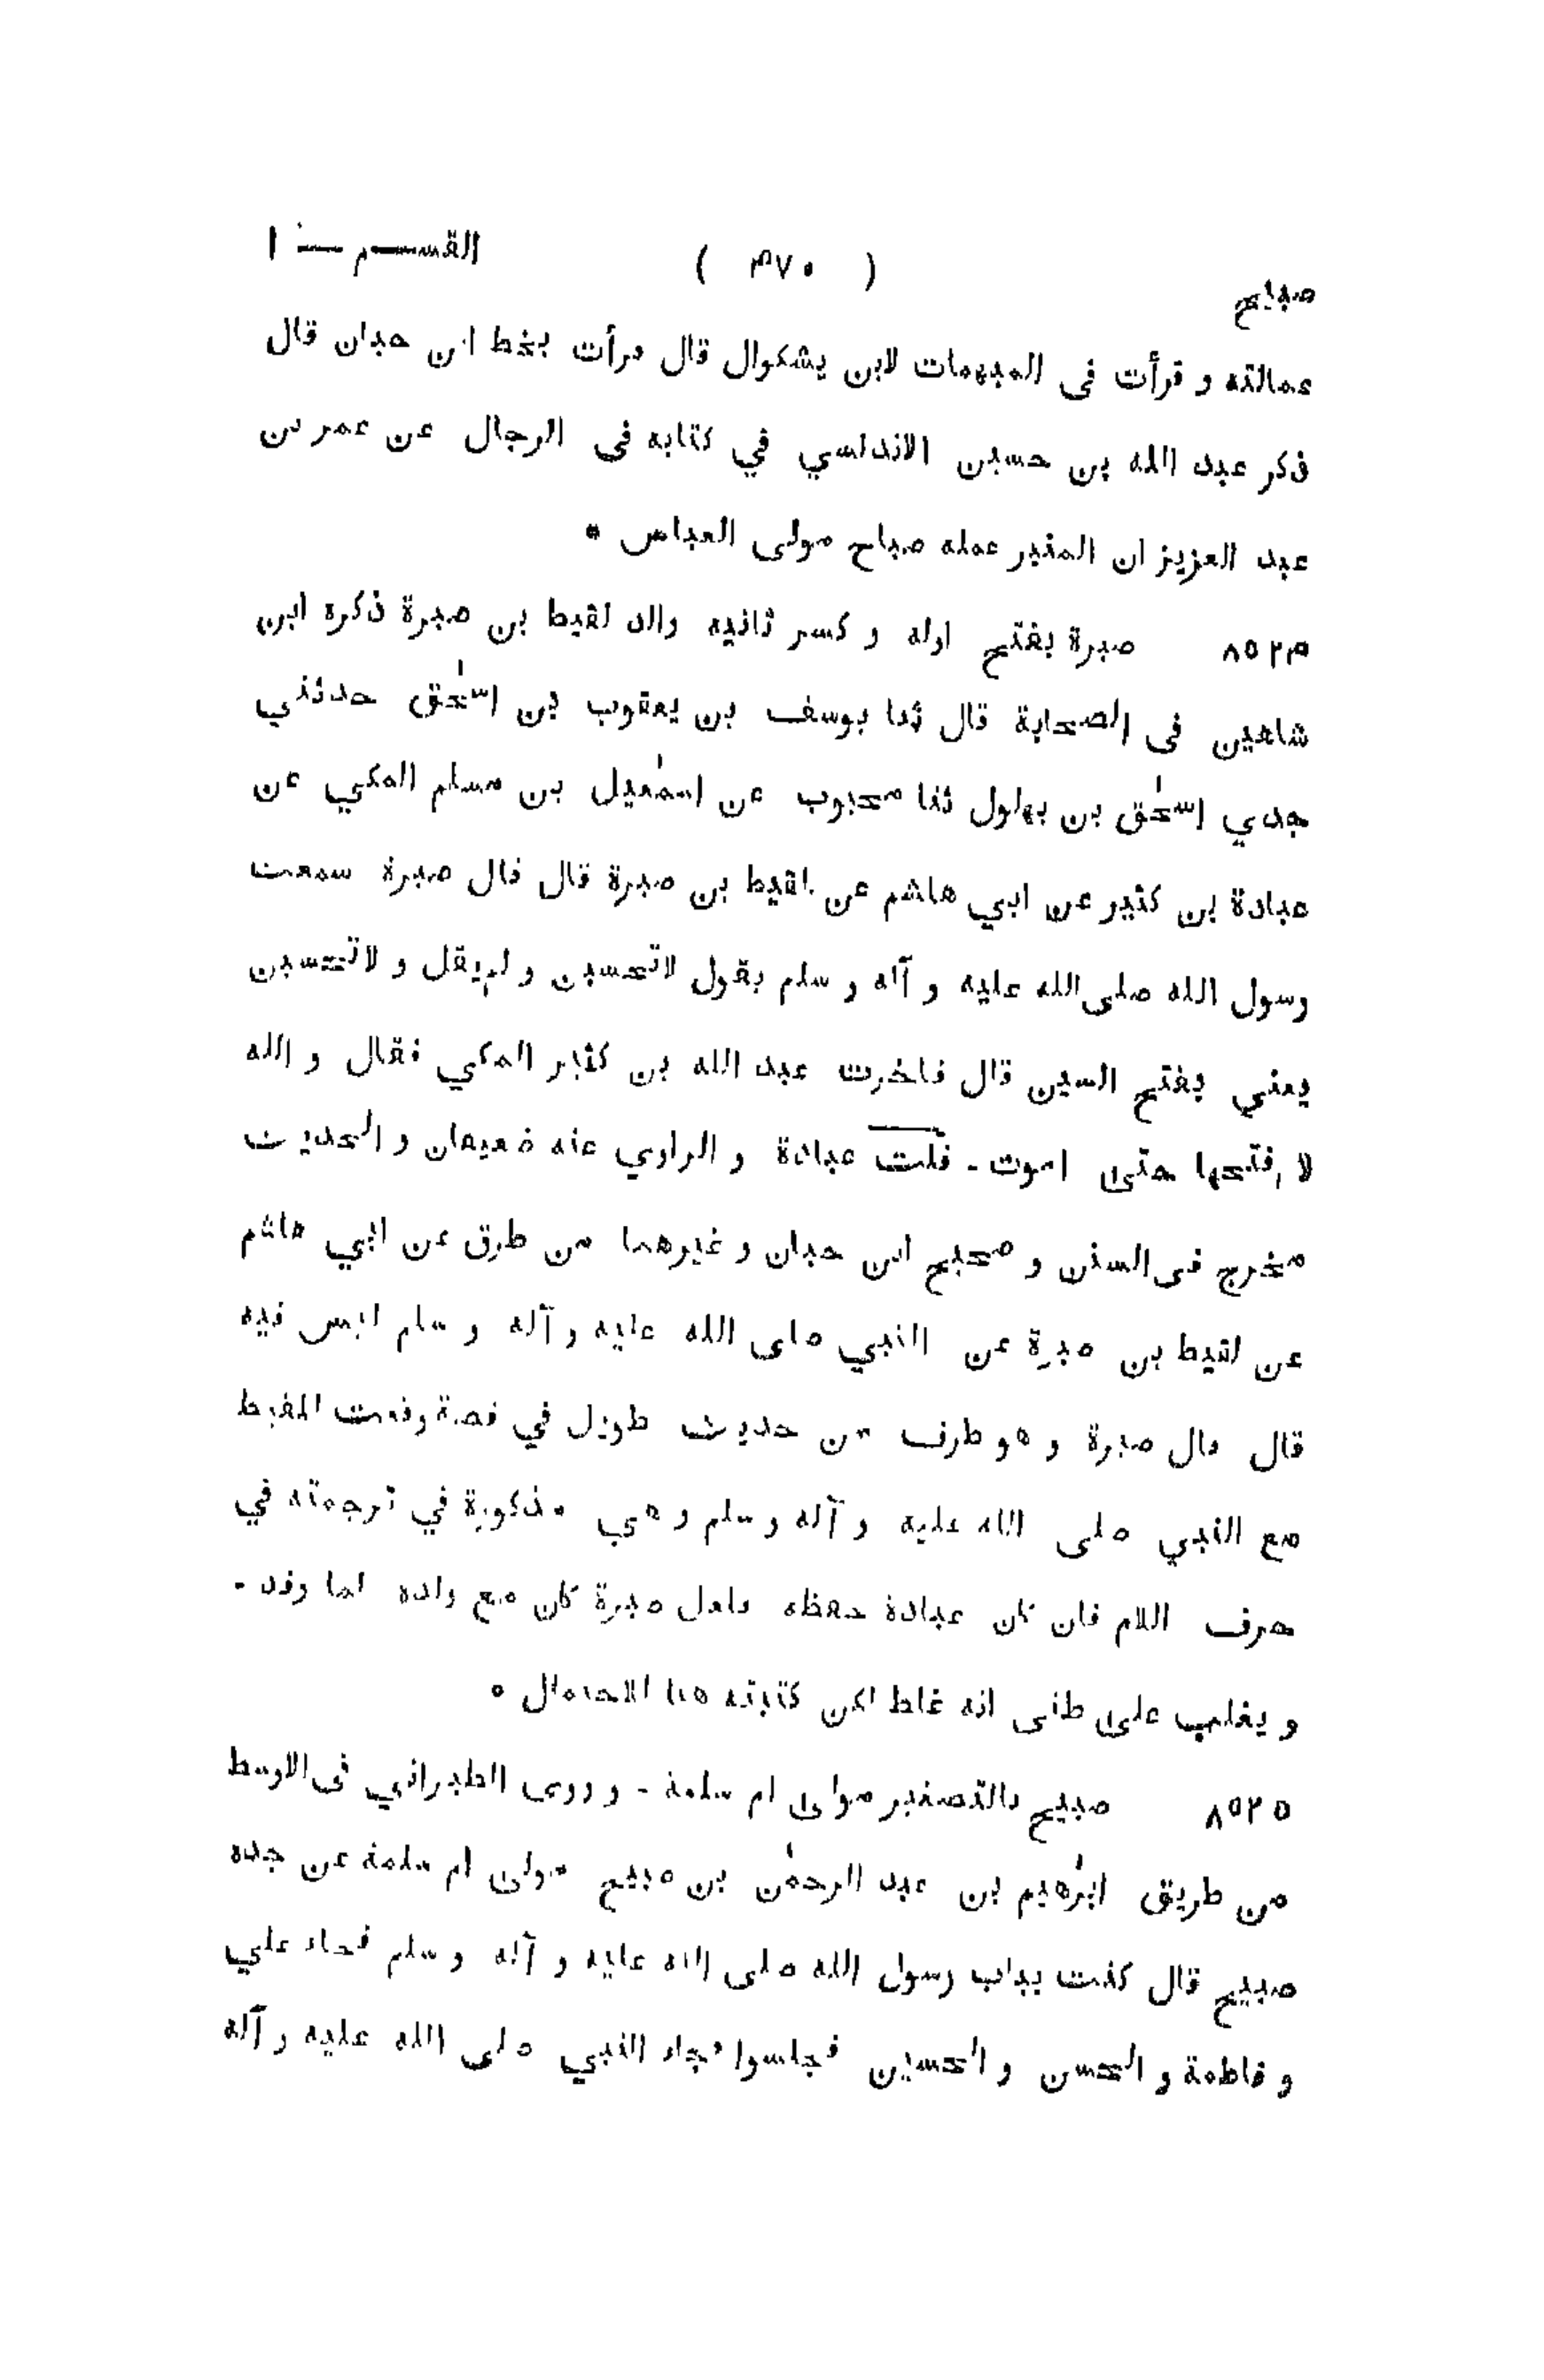 صبيح ( ٤٧٠ ) القسم ـ ١
عمالقه و قرأت فى المبهمات لابن يشكوال قال قرأت بخط ابن حبان قال
ذكر عبد الله بن حسين الاندلسي في كتابه فى الرجال عن عمر بن
عبد العزيز ان المنبر عمله صباح مولى العباس *
٨٥٢٤ صبرة بفتح اوله و كسر ثانيه والد لقيط بن صبرة ذكره ابن
شاهين فى الصحابة قال ثنا يوسف بن يعقوب بن اسحٰق حدثني
جدي اسحٰق بن بهلول ثنا محبوب عن اسمٰعيل بن مسلم المكي عن
عبادة بن كثير عن ابي هاشم عن لقيط بن صبرة قال قال صبرة سمعت
رسول الله صلى الله عليه و آله و سلم يقول لاتحسبن و لم يقل و لاتحسبن
يعني بفتح السين قال فاخبرت عبد الله بن كثير المكي فقال و الله
لا افتحها حتى اموت - قلت عبادة و الراوي عنه ضعيفان و الحديث
مخرج فى السنن و صحيح ابن حبان و غيرهما من طرق عن ابي هاشم
عن لقيط بن صبرة عن النبي صلى الله عليه و آله و سلم ليس فيه
قال قال صبرة و هو طرف من حديث طويل في قصة وقعت للقيط
مع النبي صلى الله عليه و آله و سلم و هي مذكورة في ترجمته في
حرف اللام فان كان عبادة حفظه فلعل صبرة كان مع ولده لما وفد -
و يغلب على ظنى انه غلط لكن كتبته هنا للاحتمال *
٨٥٢٥ صبيح بالتصغير مولى ام سلمة - و روى الطبراني فى الاوسط
من طريق ابرٰهيم بن عبد الرحمٰن بن صبيح مولى ام سلمة عن جده
صبيح قال كنت بباب رسول الله صلى الله عليه و آله و سلم فجاء علي
و فاطمة و الحسن و الحسين فجلسوا فجاء النبي صلى الله عليه و آله